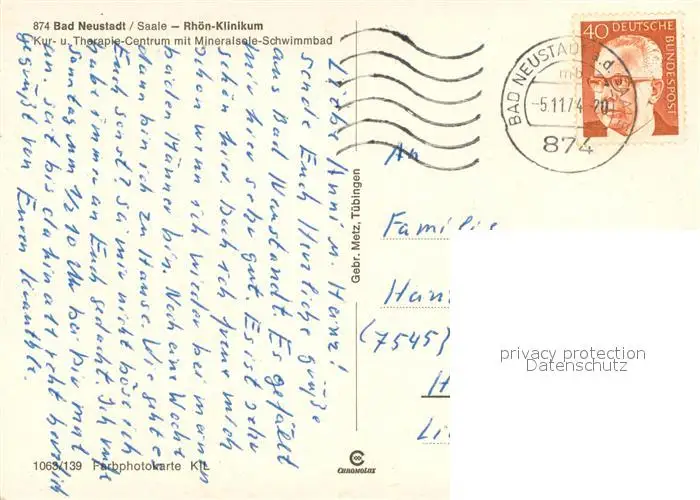 874 Bad Neustadt / Saale – Rhön-Klinikum
Kur- u. Therapie-Centrum mit Mineralsole-Schwimmbad
Liebe Anni u. Heinz!
sende Euch Herzliche Grüße
aus Bad Neustadt. Es gefällt
mir hier sehr gut. Es ist sehr
schön hier. Doch ich freue mich
schon wenn ich wieder bei meinen
beiden Männer bin. Noch eine Woche
dann bin ich zu Hause. Wie geht es
Euch sonst? sei mir nicht böse ich
habe immer an Euch gedacht. Ich rufe
Sonntag um 1/2 10 Uhr bei Dir mal
an, seit bis dahin all recht herzlich
gegrüßt von Euren
1063/139 Farbphotokarte KL
Gebr. Metz, Tübingen
CHROMOLUX
40 DEUTSCHE BUNDESPOST
BAD NEUSTADT a.d. SAALE
-5.11.74-20
874
An
Familie
(7545)
privacy protection
Datenschutz